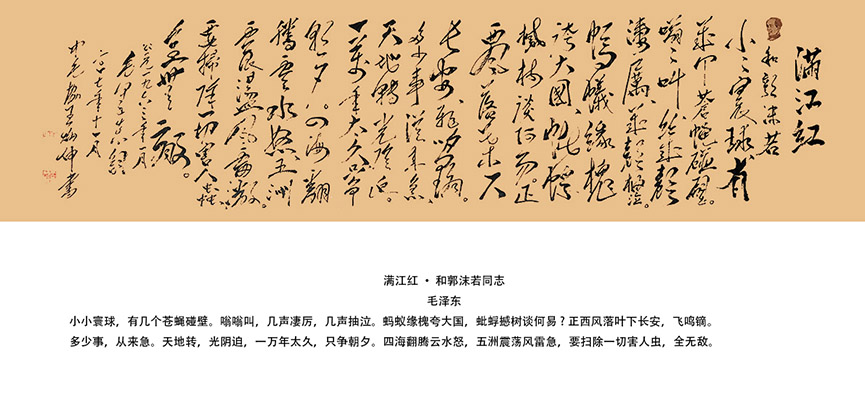 滿江紅
和郭沫若
小小寰球，有
几个蒼蠅碰壁。
嗡嗡叫，几聲
淒厲，几聲抽泣。
螞蟻緣槐
誇大國，蚍蜉
撼樹談何易。正
西風落葉下
長安，飛鳴鏑。
多少事，從來急。
天地轉，光陰迫。
一萬年太久，只爭
朝夕。四海翻
騰雲水怒，五洲
震盪風雷激。
要掃除一切害人虫，
全無敵。
公元一九六三年一月
满江红 · 和郭沫若同志
毛泽东
小小寰球，有几个苍蝇碰壁。嗡嗡叫，几声凄厉，几声抽泣。蚂蚁缘槐夸大国，蚍蜉撼树谈何易？正西风落叶下长安，飞鸣镝。
多少事，从来急。天地转，光阴迫，一万年太久，只争朝夕。四海翻腾云水怒，五洲震荡风雷急，要扫除一切害人虫，全无敌。